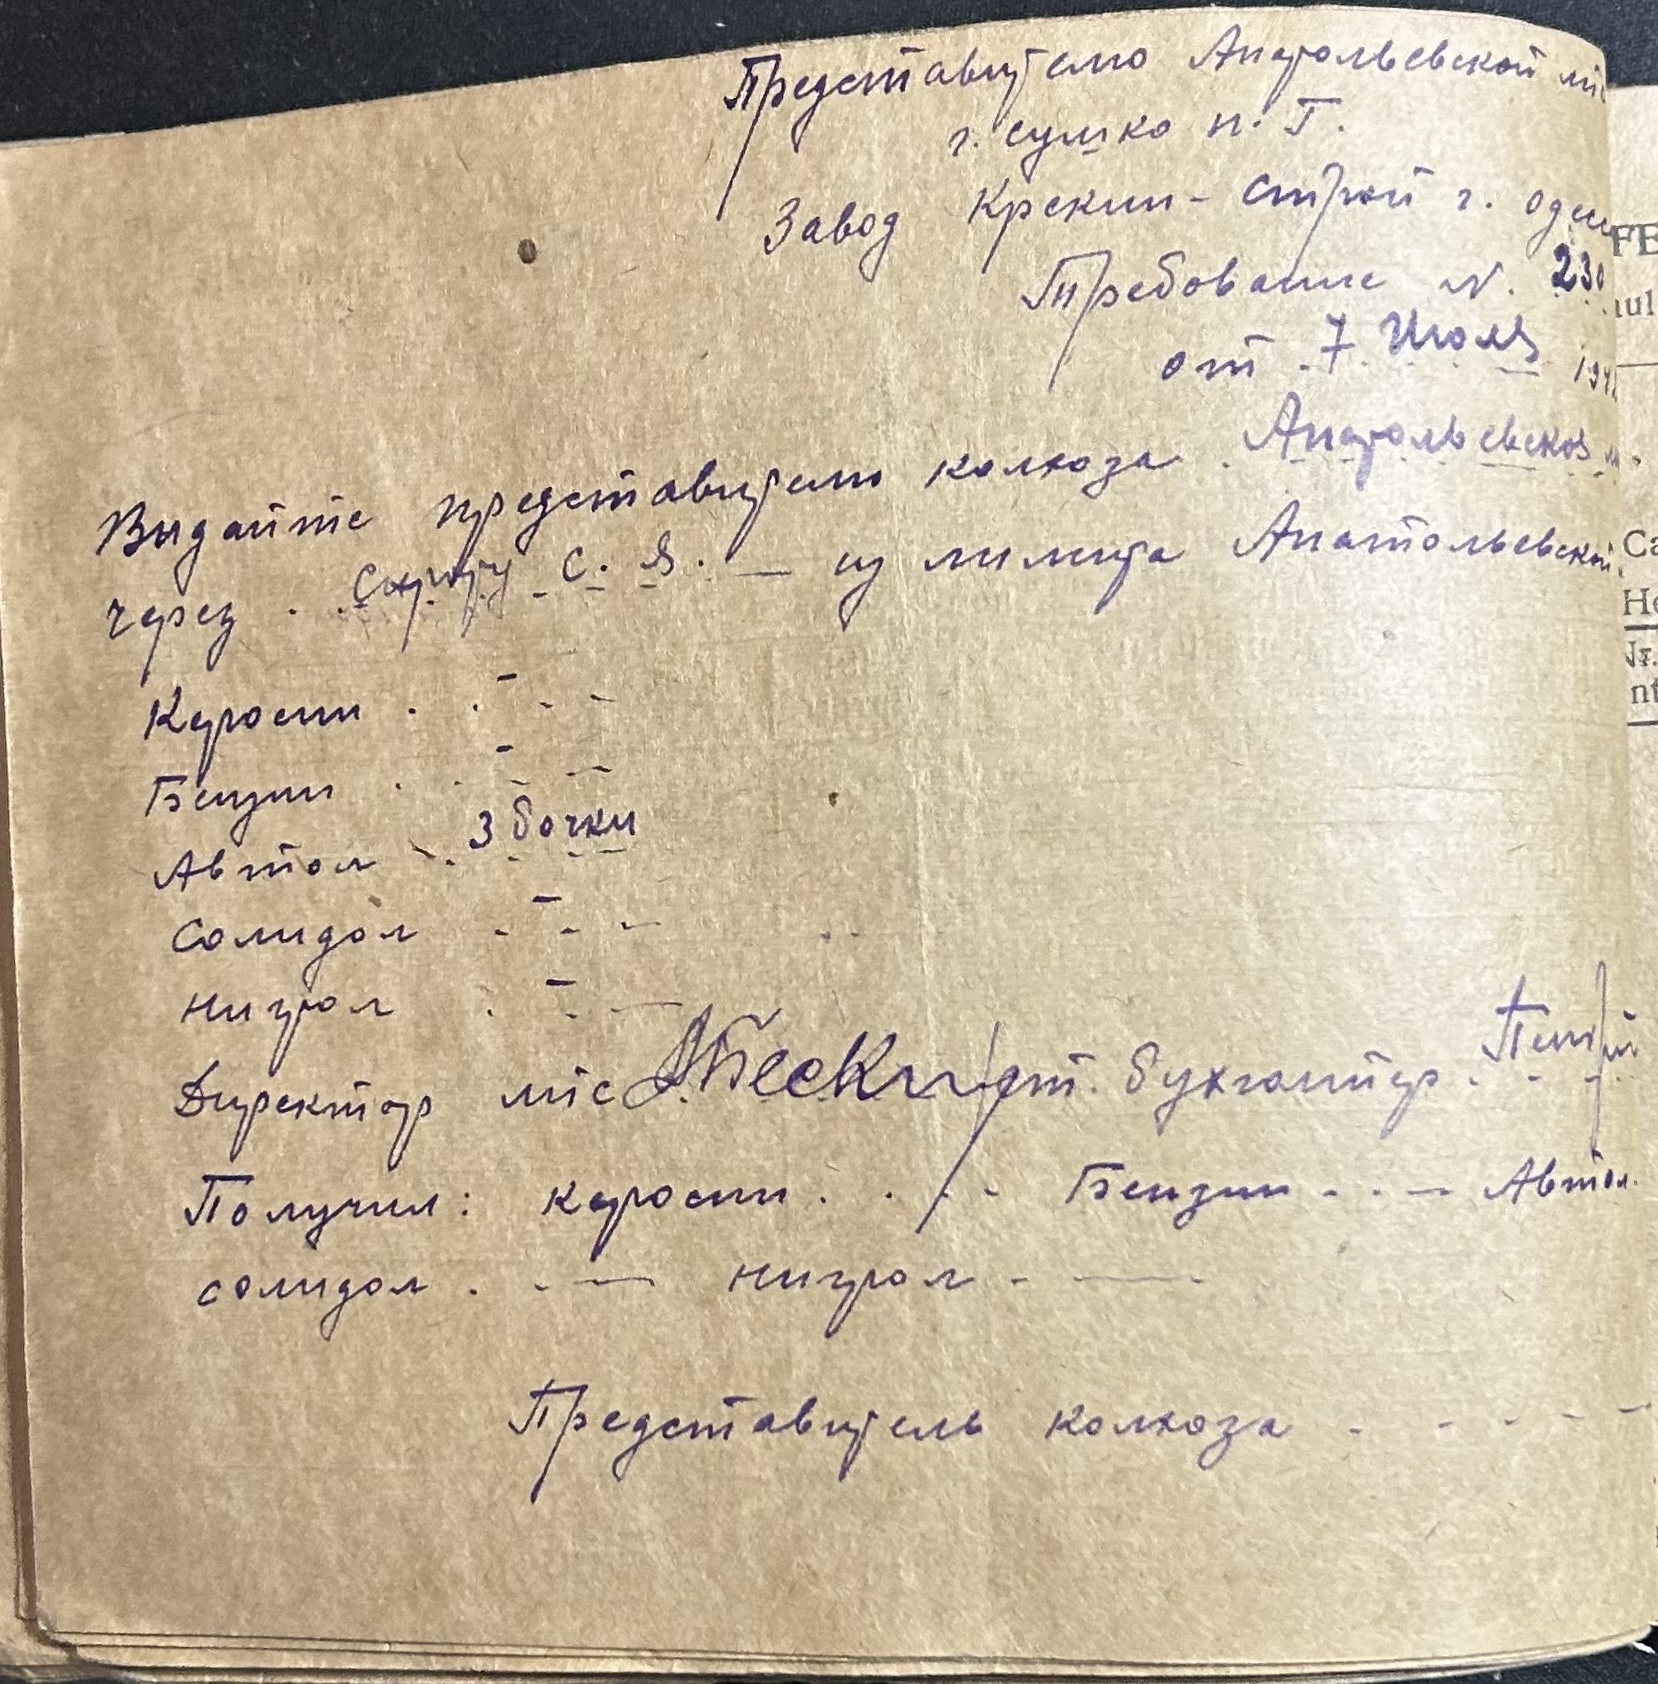 Представителю Анатольевской мтс
г. Сушко н. Г.
Завод Крекин-строй г. Одес
Требование N. 230
от 7 Июля 194
Выдайте представителю колхоза Анатольевской м.
через С. Я. — из лимита Анатольевской
Керосин . . - - -
Бензин . . - - -
Автол . 3 бочки
Солидол - - -
нигрол . - -
Директор мтс ст. бухгалтер
Получил: керосин . . - - Бензин - - - Автол.
солидол . - — нигрол - —
Представитель колхоза - - - - -
FE
aul
Ca
He
Nr.
nt